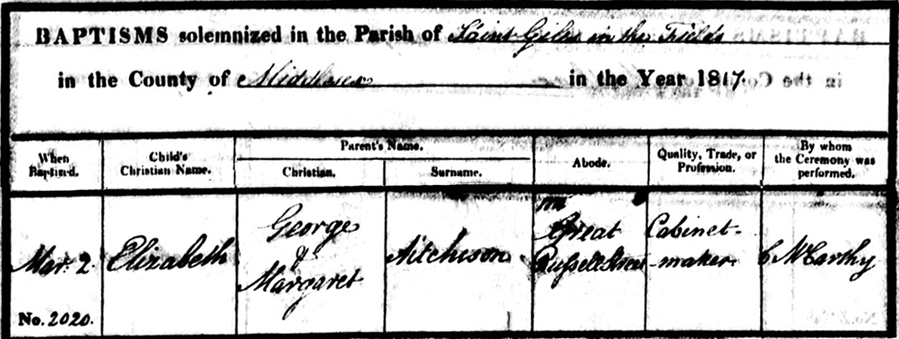 BAPTISMS solemnized in the Parish of Saint Giles in the Fields
in the County of Middlesex in the Year 1817.
When Baptized.
Child's Christian Name.
Parent's Name.
Christian.
Surname.
Abode.
Quality, Trade, or Profession.
By whom the Ceremony was performed.
Mar. 2
No. 2020.
Elizabeth
George
&
Margaret
Aitchison
Great
Russell Street
Cabinet-
-maker
C McCarthy